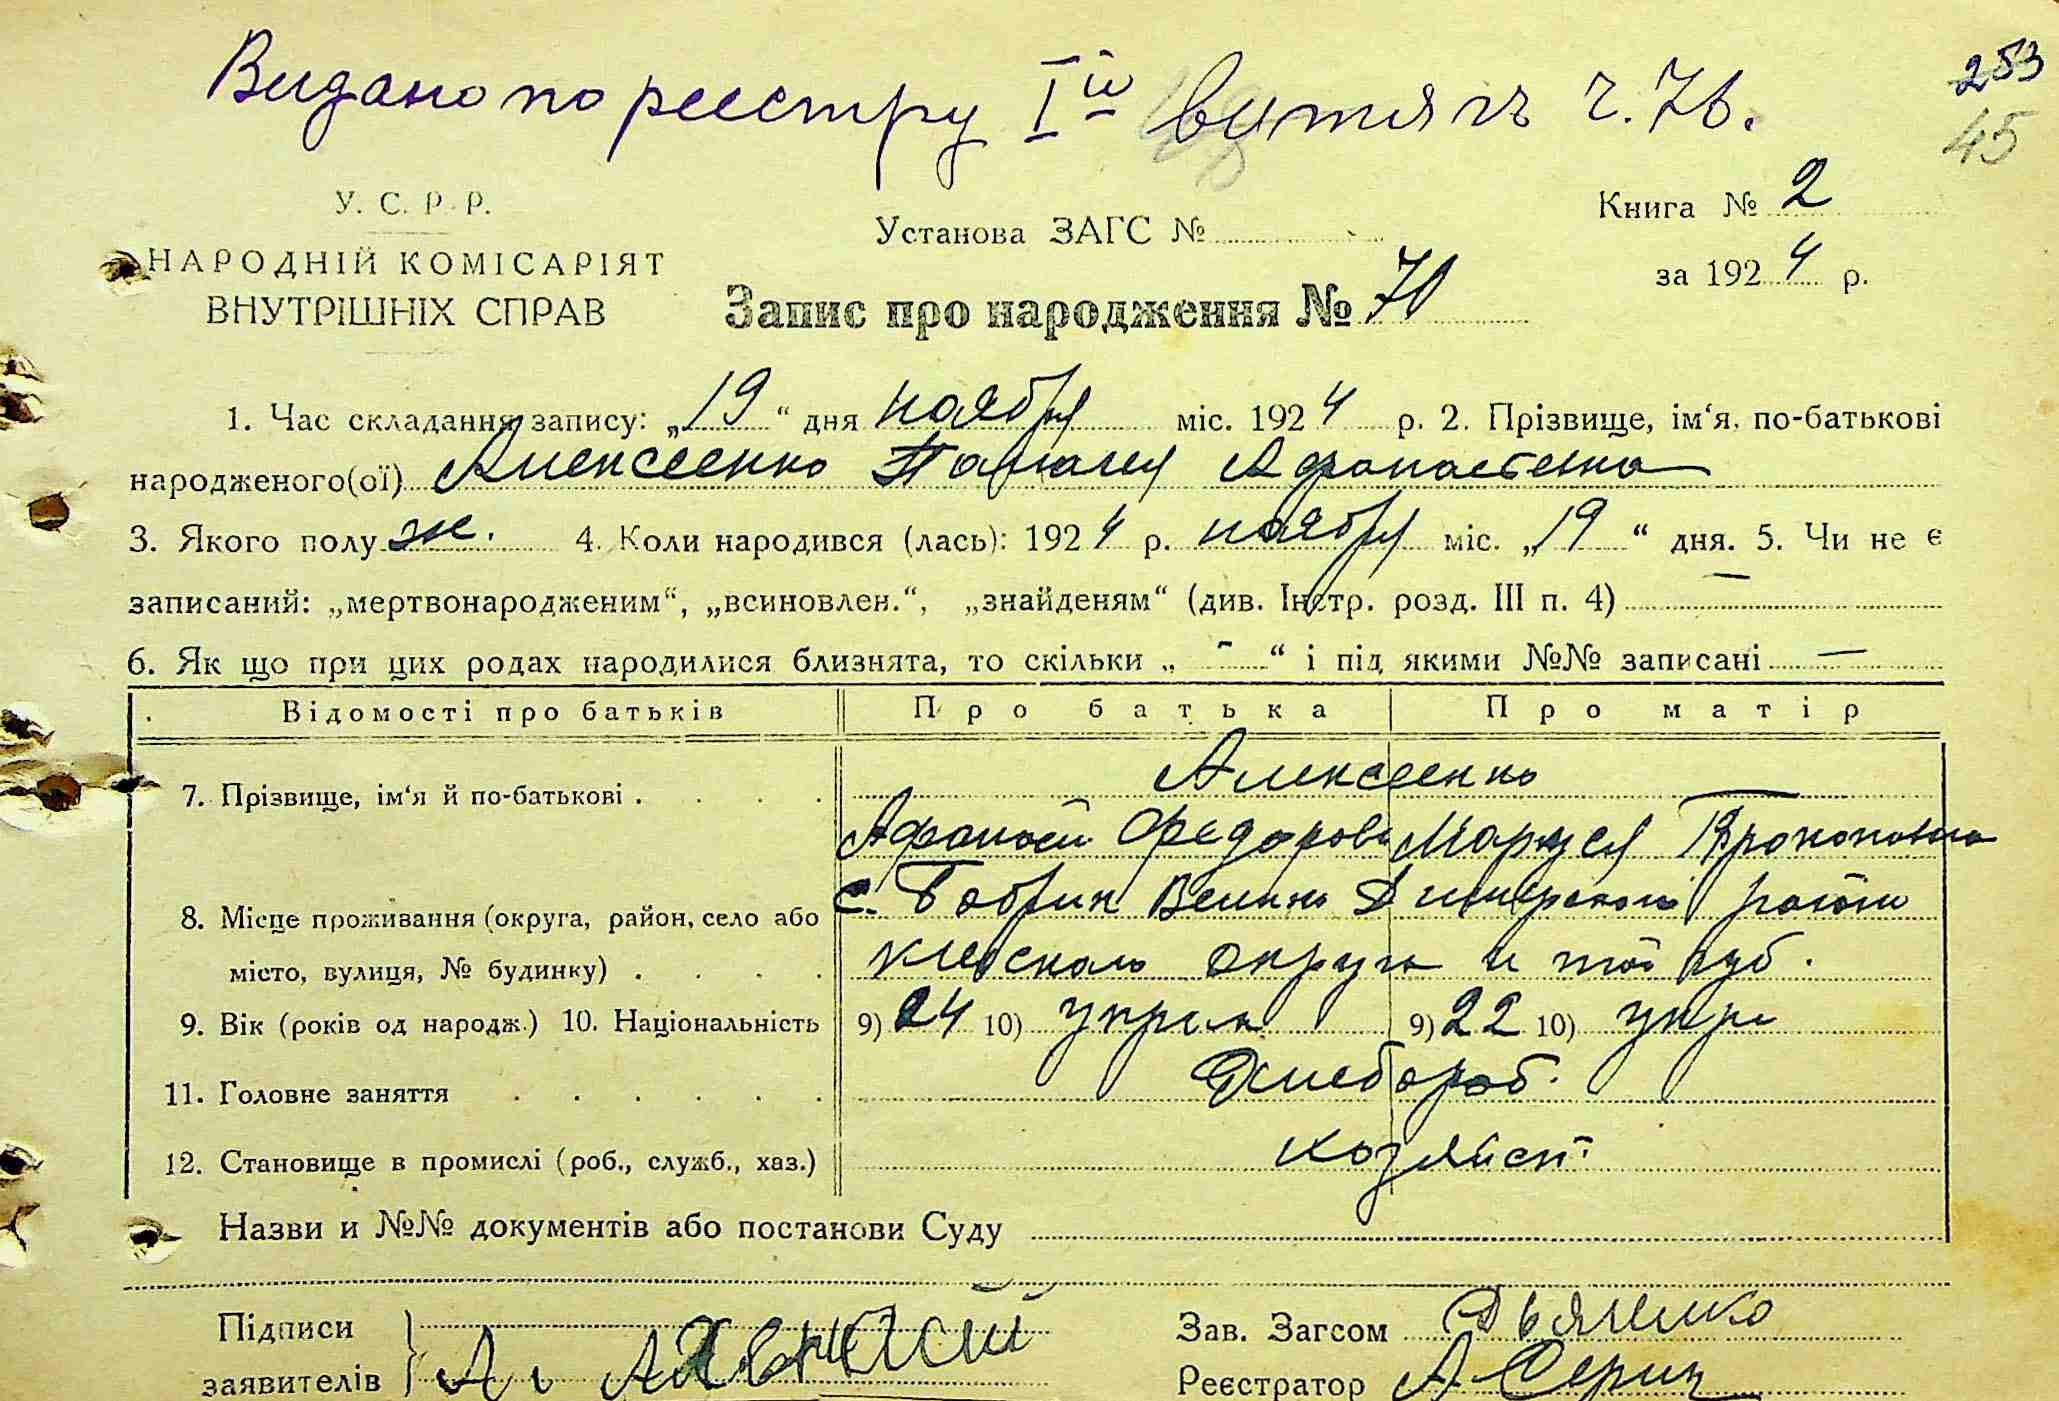 Видано по реестру Iій витяг ч. 76.
253
45
У. С. Р. Р.
НАРОДНІЙ КОМІСАРІЯТ
ВНУТРІШНІХ СПРАВ
Установа ЗАГС №
Книга № 2
за 1924 р.
Запис про народження № 70
1. Час складання запису: „19“ дня ноября міс. 1924 р. 2. Прізвище, ім‘я, по-батькові
народженого(ої) Алексеенко Афанасьевна
3. Якого полу ж. 4. Коли народився (лась): 1924 р. ноября міс. „19“ дня. 5. Чи не є
записаний: „мертвонародженим“, „всиновлен.“, „знайденям“ (див. Інстр. розд. III п. 4) —
6. Як що при цих родах народилися близнята, то скільки „ - “ і під якими №№ записані —
Відомості про батьків Про батька Про матір
7. Прізвище, ім‘я й по-батькові . . . . Алексеенко
Афанасий Федорови Маруся Прокоповна
8. Місце проживання (округа, район, село або с. Бобрик Велико Димерского района
місто, вулиця, № будинку) . . . . киевского округа и той губ.
9. Вік (років од народж.) 10. Національність 9) 24 10) украин 9) 22 10) укра
11. Головне заняття . . . . . . Хлебороб.
12. Становище в промислі (роб., служб., хаз.) хозяйст.
Назви и №№ документів або постанови Суду
Підписи
заявителів
Зав. Загсом Дьяченко
Реєстратор А.